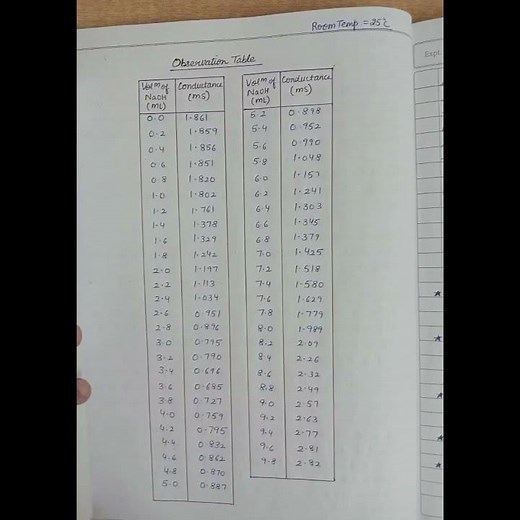 Room Temp = 25°C
Observation Table
Vol^m of NaOH (mL) Conductance (mS)
0.0 1.861
0.2 1.859
0.4 1.856
0.6 1.851
0.8 1.820
1.0 1.802
1.2 1.761
1.4 1.378
1.6 1.329
1.8 1.242
2.0 1.197
2.2 1.113
2.4 1.034
2.6 0.951
2.8 0.896
3.0 0.795
3.2 0.790
3.4 0.696
3.6 0.685
3.8 0.727
4.0 0.759
4.2 0.795
4.4 0.832
4.6 0.862
4.8 0.870
5.0 0.887
Vol^m of NaOH (mL) Conductance (mS)
5.2 0.898
5.4 0.952
5.6 0.990
5.8 1.048
6.0 1.157
6.2 1.241
6.4 1.303
6.6 1.345
6.8 1.379
7.0 1.425
7.2 1.518
7.4 1.580
7.6 1.629
7.8 1.779
8.0 1.989
8.2 2.09
8.4 2.26
8.6 2.32
8.8 2.49
9.0 2.57
9.2 2.63
9.4 2.77
9.6 2.81
9.8 2.82
Expt